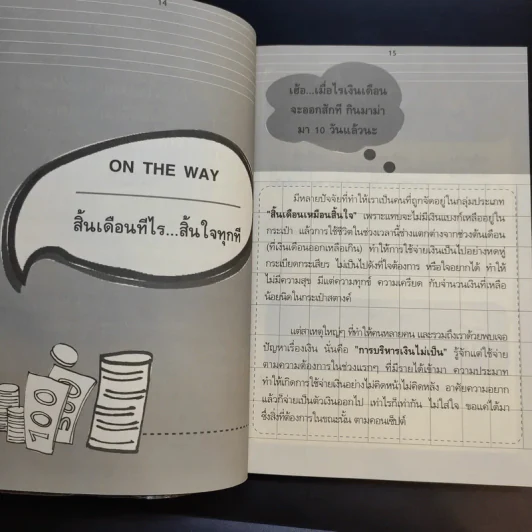 14
ON THE WAY
สิ้นเดือนทีไร...สิ้นใจทุกที
100
500
15
เฮ้อ...เมื่อไรเงินเดือน
จะออกสักที กินมาม่า
มา 10 วันแล้วนะ
มีหลายปัจจัยที่ทำให้เราเป็นคนที่ถูกจัดอยู่ในกลุ่มประเภท
"สิ้นเดือนเหมือนสิ้นใจ" เพราะแทบจะไม่มีเงินแบงก์เหลืออยู่ใน
กระเป๋า แล้วการใช้ชีวิตในช่วงเวลานี้ช่างแตกต่างจากช่วงต้นเดือน
(ที่เงินเดือนออกเหลือเกิน) ทำให้การใช้จ่ายเงินเป็นไปอย่างหดหู่
กระเบียดกระเสียร ไม่เป็นไปดังที่ใจต้องการ หรือใจอยากได้ ทำให้
ไม่มีความสุข มีแต่ความทุกข์ ความเครียด กับจำนวนเงินที่เหลือ
น้อยนิดในกระเป๋าสตางค์
แต่สาเหตุใหญ่ๆ ที่ทำให้คนหลายคน และรวมถึงเราด้วยพบเจอ
ปัญหาเรื่องเงิน นั่นคือ "การบริหารเงินไม่เป็น" รู้จักแต่ใช้จ่าย
ตามความต้องการในช่วงแรกๆ ที่มีรายได้เข้ามา ความประมาท
ทำให้เกิดการใช้จ่ายเงินอย่างไม่คิดหน้าไม่คิดหลัง อาศัยความอยาก
แล้วก็จ่ายเป็นตัวเงินออกไป เท่าไรก็เท่ากัน ไม่ใส่ใจ ขอแค่ได้มา
ซึ่งสิ่งที่ต้องการในขณะนั้น ตามคอนเซ็ปต์